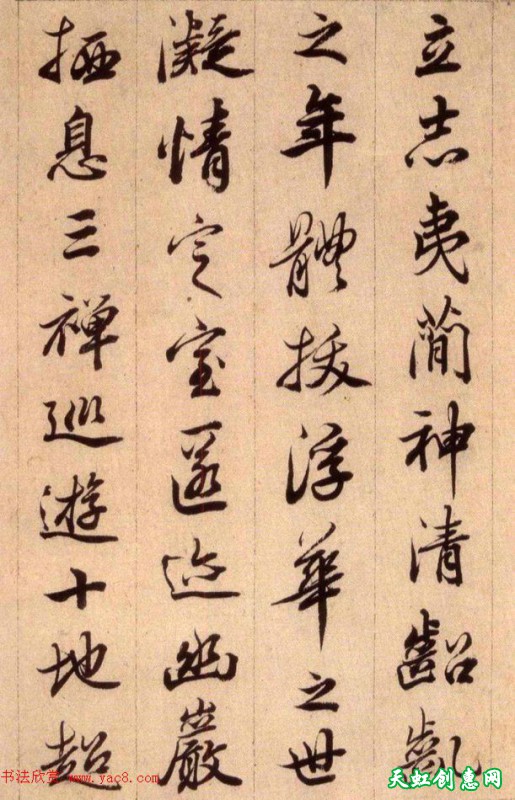 立志夷簡神清齠齔
之年體拔浮華之世
凝情定室匿迹幽巖
栖息三禅巡遊十地超
书法欣赏 www.yac8.com
天虹创意网